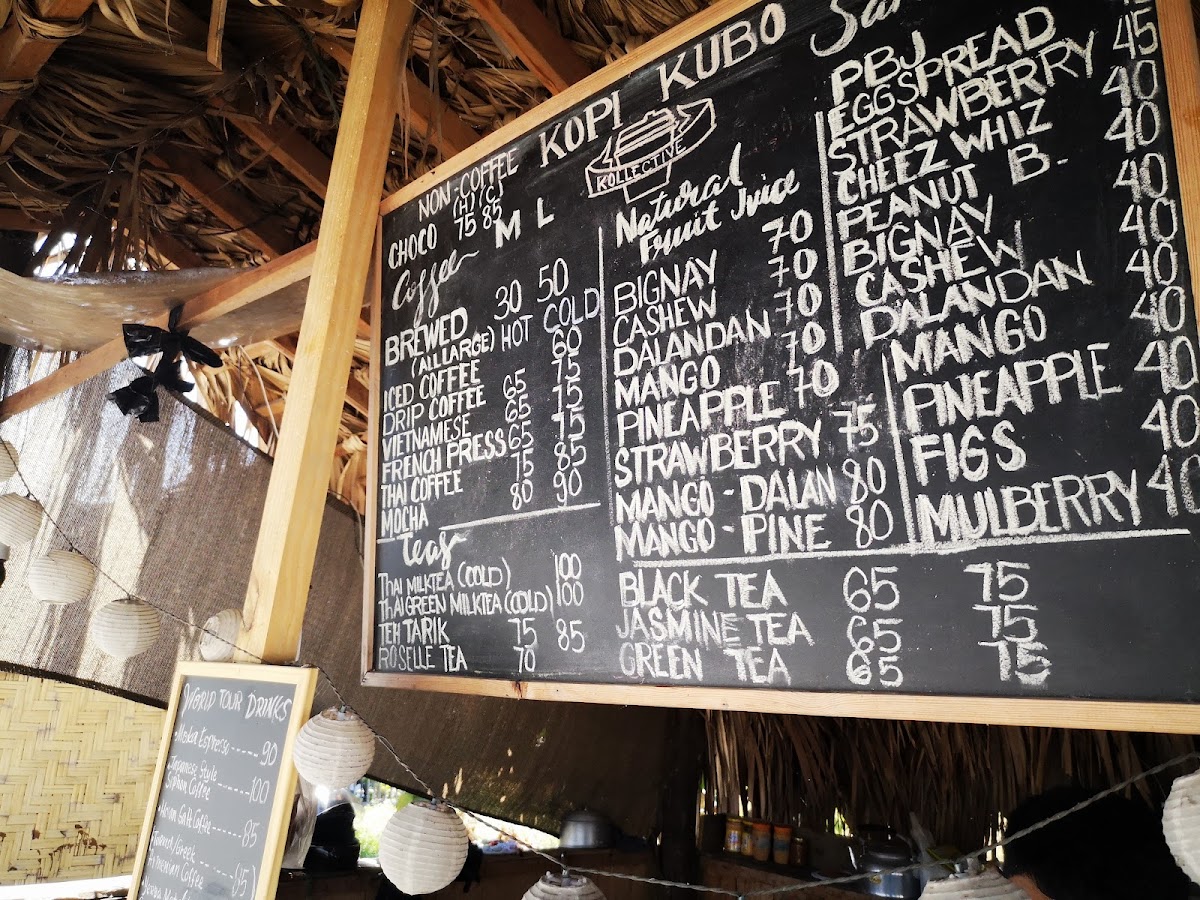 KOPI KUBO
KOLLECTIVE
NON-COFFEE
(H) (C)
CHOCO 75 85
M L
Coffee
BREWED 30 50
(ALL LARGE) HOT COLD
ICED COFFEE 60
DRIP COFFEE 65 75
VIETNAMESE 65 75
FRENCH PRESS 65 75
THAI COFFEE 75 85
MOCHA 80 90
Teas
THAI MILKTEA (COLD) 100
THAI GREEN MILKTEA (COLD) 100
TEH TARIK 75 85
ROSELLE TEA 70
Natural
Fruit Juice
BIGNAY 70
CASHEW 70
DALANDAN 70
MANGO 70
PINEAPPLE 70
STRAWBERRY 75
MANGO-DALAN 80
MANGO-PINE 80
BLACK TEA 65 75
JASMINE TEA 65 75
GREEN TEA 65 75
PBJ 45
EGGSPREAD 40
STRAWBERRY 40
CHEEZ WHIZ 40
PEANUT B. 40
BIGNAY 40
CASHEW 40
DALANDAN 40
MANGO 40
PINEAPPLE 40
FIGS 40
MULBERRY 40
WORLD TOUR DRINKS
Moka Espresso ----- 90
Japanese Style
Siphon Coffee ---- 100
Coffee ---- 85
Turkish/Greek
Armenian Coffee 85